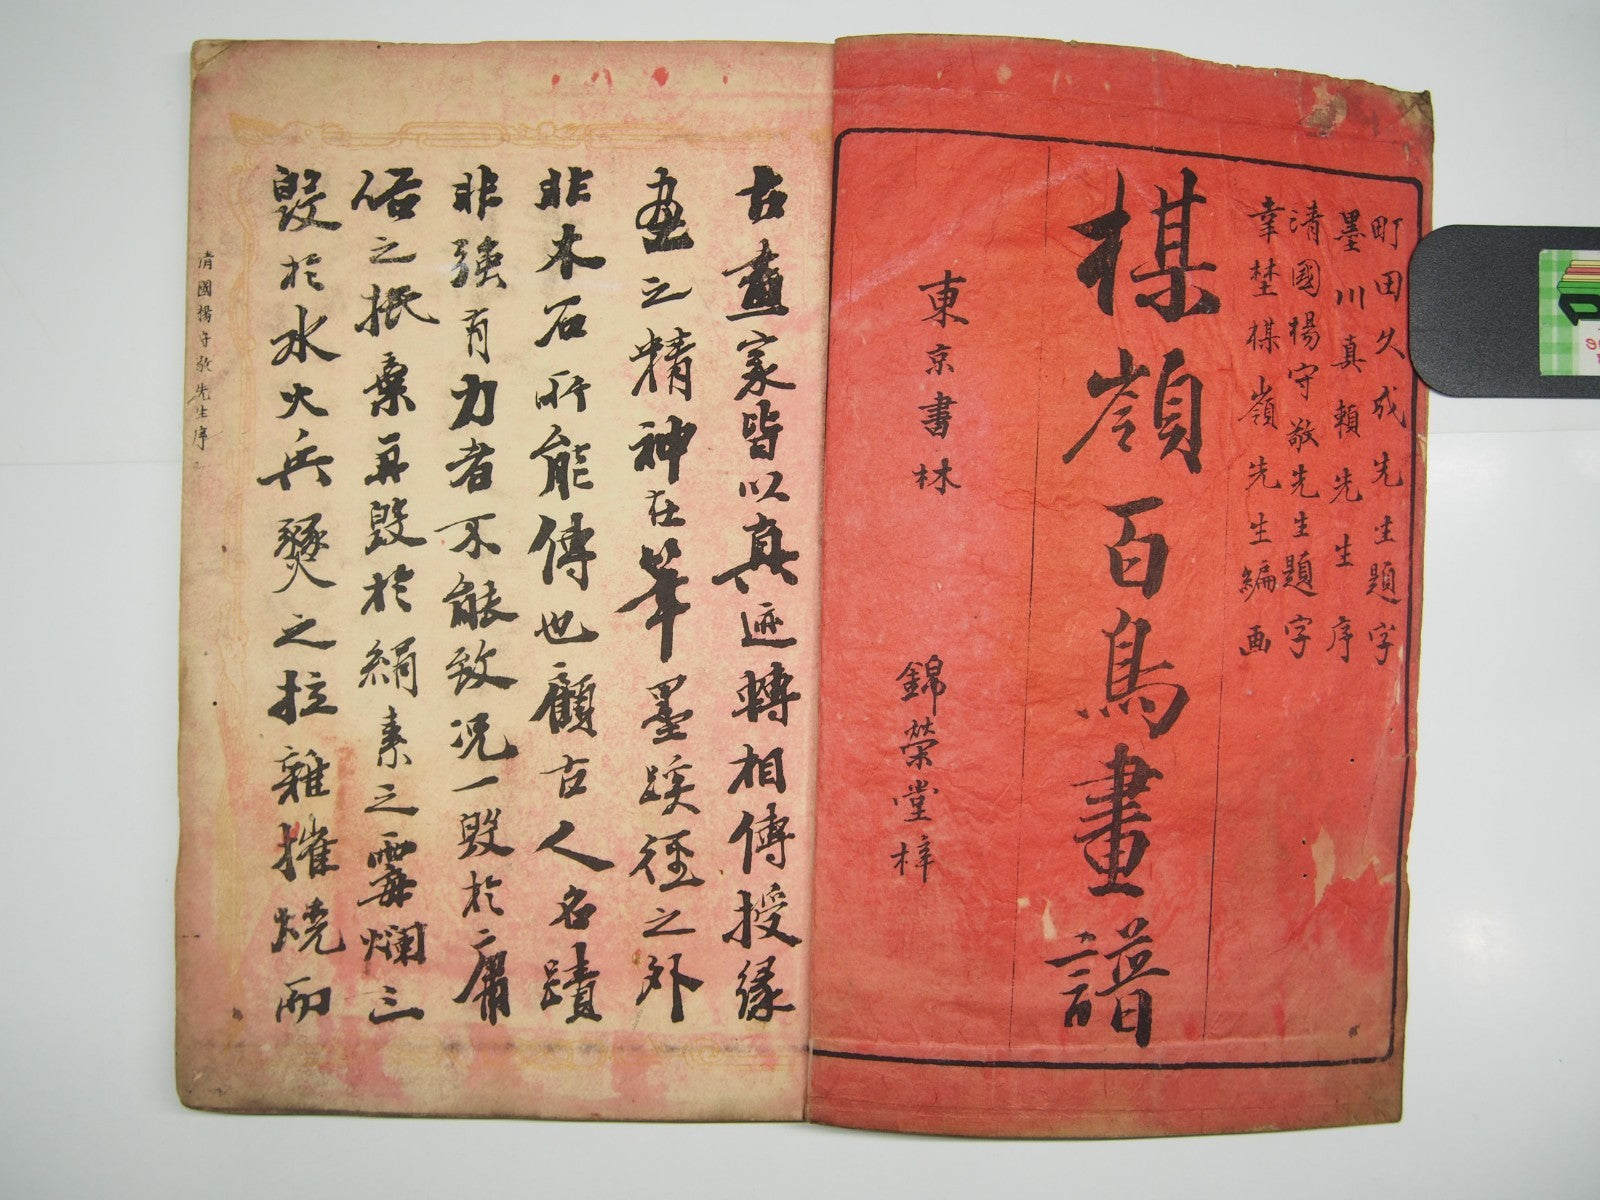 町田久成先生題字
墨川真頼先生序
清國楊守敬先生題字
幸埜楳嶺先生編画
楳嶺百鳥畫譜
東京書林 錦榮堂梓
古畫家皆以真迹轉相傳授緣
畫之精神在筆墨蹊徑之外
非木石所能傳也顧古人名蹟
非強有力者不能致況一毀於庸
俗之抵棄再毀於絹素之霉爛三
毀於水火兵燹之拉雜摧燒而
清國楊守敬先生序